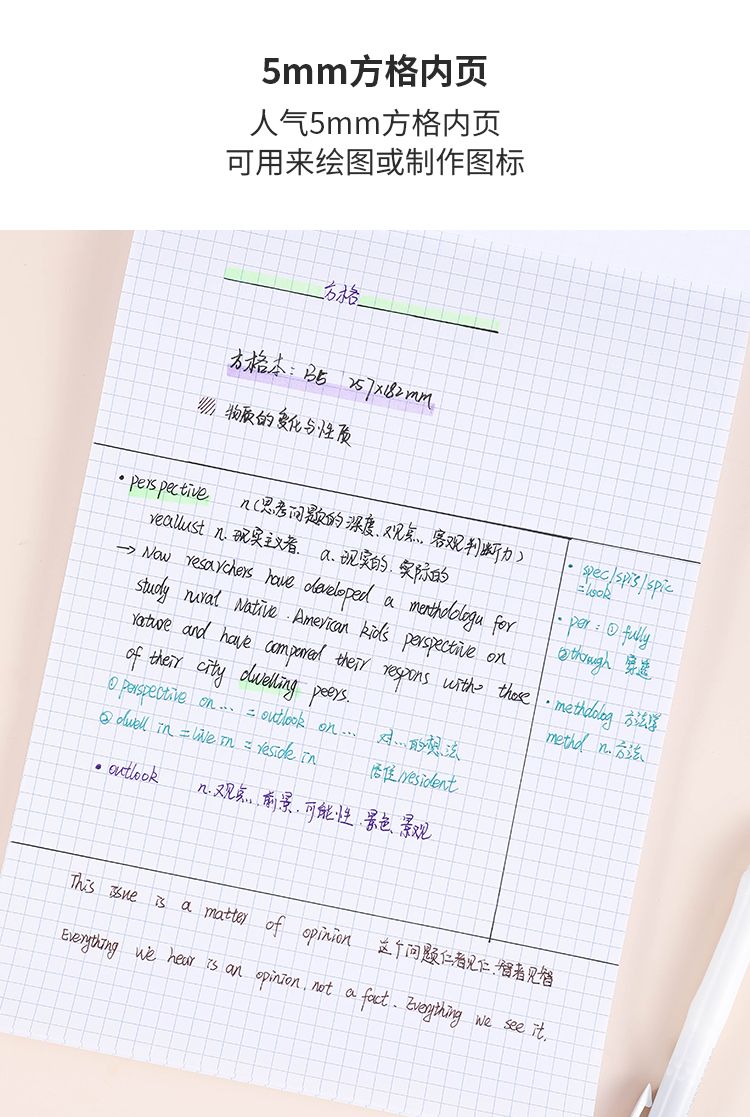 5mm方格内页
人气5mm方格内页
可用来绘图或制作图标
方格
方格本：B5 257x182mm
物质的变化与性质
• perspective n（思考问题的深度、观点、客观判断力）
reallust n. 现实主义者. a. 现实的. 实际的
→ Now resarchers have developed a menthdologu for
study rural Native American kid's perspective on
rature and have compared their respons with those
of their city dwelling peers.
① perspective on ... = outlook on ... 对...的想法
② dwell in = live in = reside in 居住/resident
• outlook n. 观点. 前景. 可能性. 景色. 景观
• spec/spis/spic
=look
• per: ① fully
② through 穿透
• methdolog 方法学
methd n. 方法
This issue is a matter of opinion 这个问题仁者见仁. 智者见智
Everything we hear is an opinion, not a fact. Everything we see it,